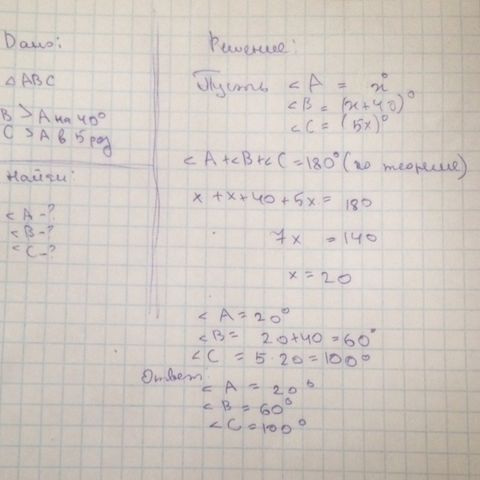 Дано:
△ABC
B > A на 40°
C > A в 5 раз
Найти:
∠A-?
∠B-?
∠C-?
Решение:
Пусть ∠A = x°
∠B = (x+40)°
∠C = (5x)°
∠A+∠B+∠C=180° (по теореме)
x+x+40+5x = 180
7x = 140
x = 20
∠A = 20°
∠B = 20+40 = 60°
∠C = 5·20 = 100°
Ответ:
∠A = 20°
∠B = 60°
∠C = 100°